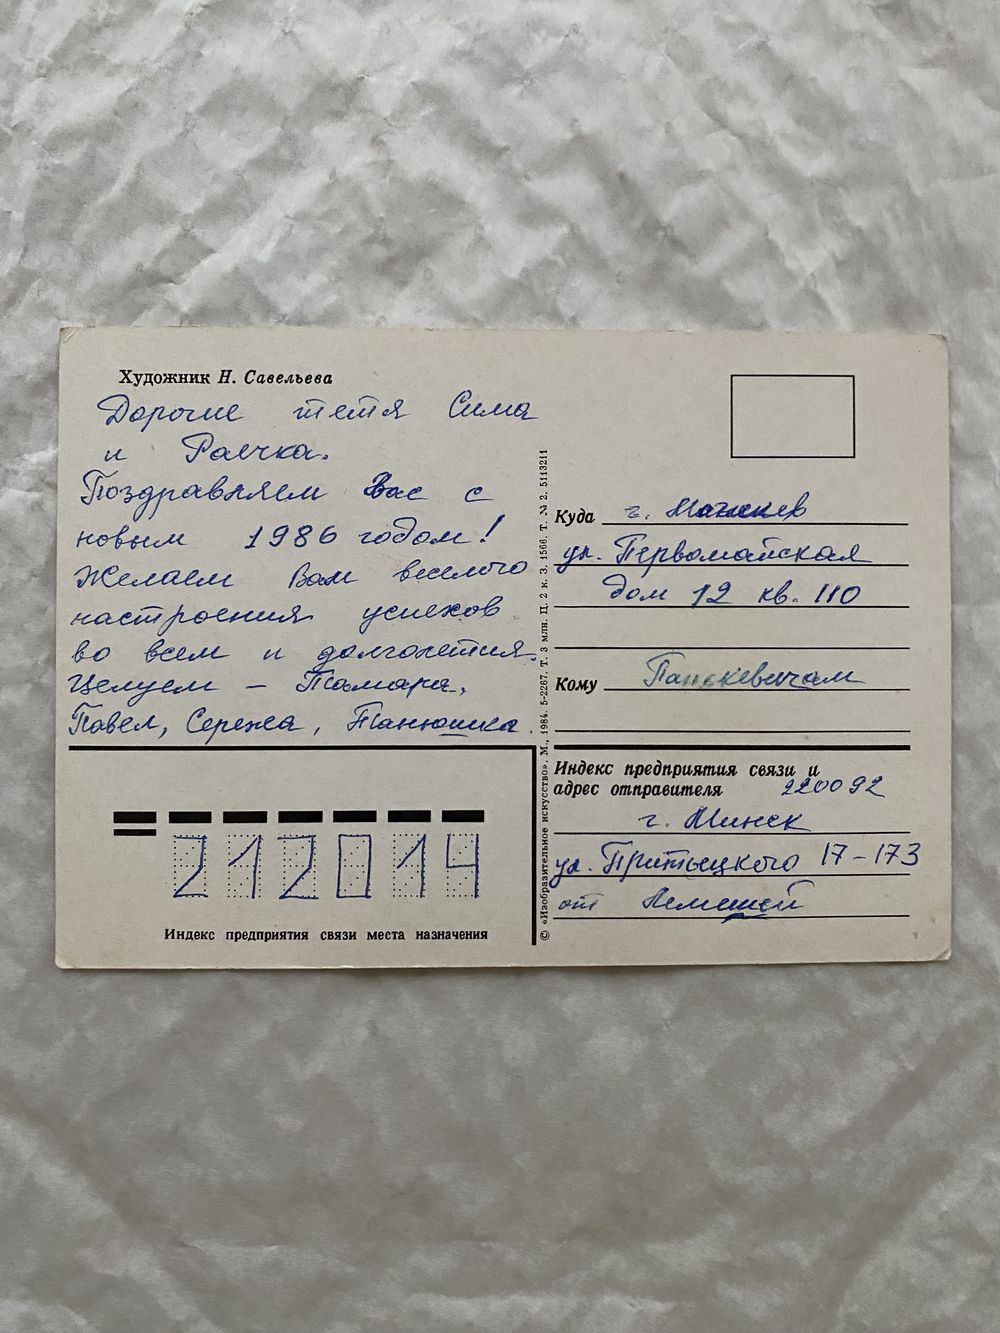 Художник Н. Савельева
Дорогие тетя Сима
и Раечка.
Поздравляем Вас с
новым 1986 годом!
Желаем Вам веселого
настроения успехов
во всем и долголетия.
Целуем – Тамара,
Павел, Сережа, Танюшка.
Индекс предприятия связи места назначения
212014
© «Изобразительное искусство». М., 1984. 5-2267. Т. 3 млн. Ц. 2 к. З. 1566. Т. № 2. 5113211
Куда г. Могилев
ул. Первомайская
дом 12 кв. 110
Кому Панскевичам
Индекс предприятия связи и
адрес отправителя 220092
г. Минск
ул. Притыцкого 17-173
от Лемешей